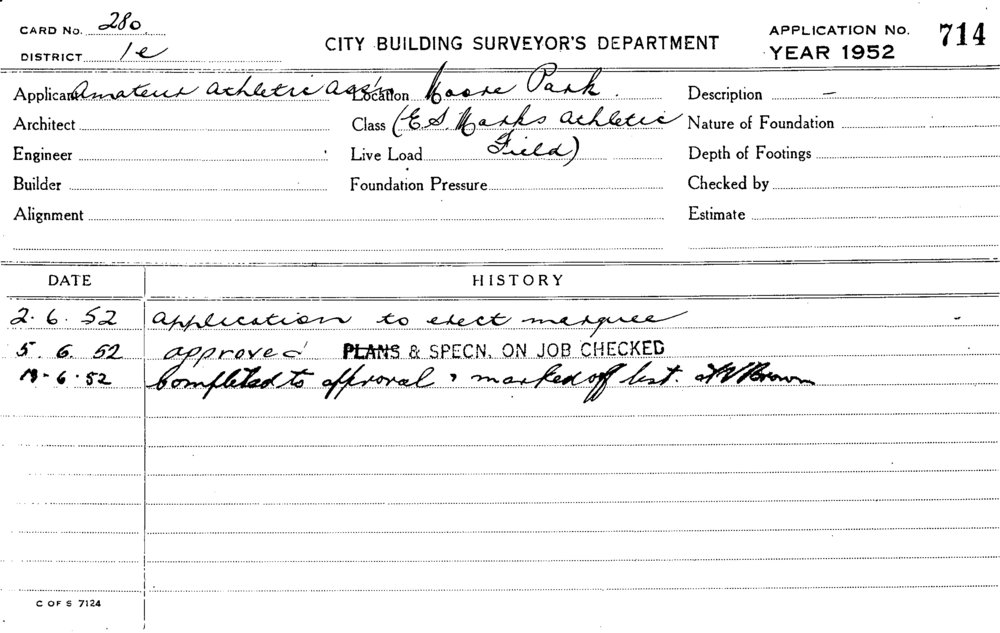 CARD No. 280.
DISTRICT 1e
CITY BUILDING SURVEYOR'S DEPARTMENT
APPLICATION No. 714
YEAR 1952
Applicant Amateur Athletic Ass'n Location Moore Park. Description –
Architect Class (E.S. Marks Athletic Nature of Foundation
Engineer Live Load Field) Depth of Footings
Builder Foundation Pressure Checked by
Alignment Estimate
DATE HISTORY
2. 6. 52 Application to erect marquee -
5. 6. 52 approved PLANS & SPECN. ON JOB CHECKED
-6-52 Completed to approval & marked off list. Brown
C OF S 7124